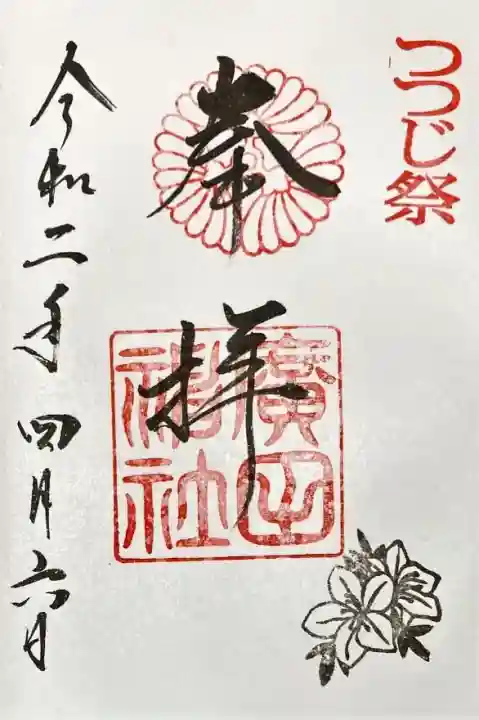 つつじ祭
奉拝
廣田神社
令和二年四月六日